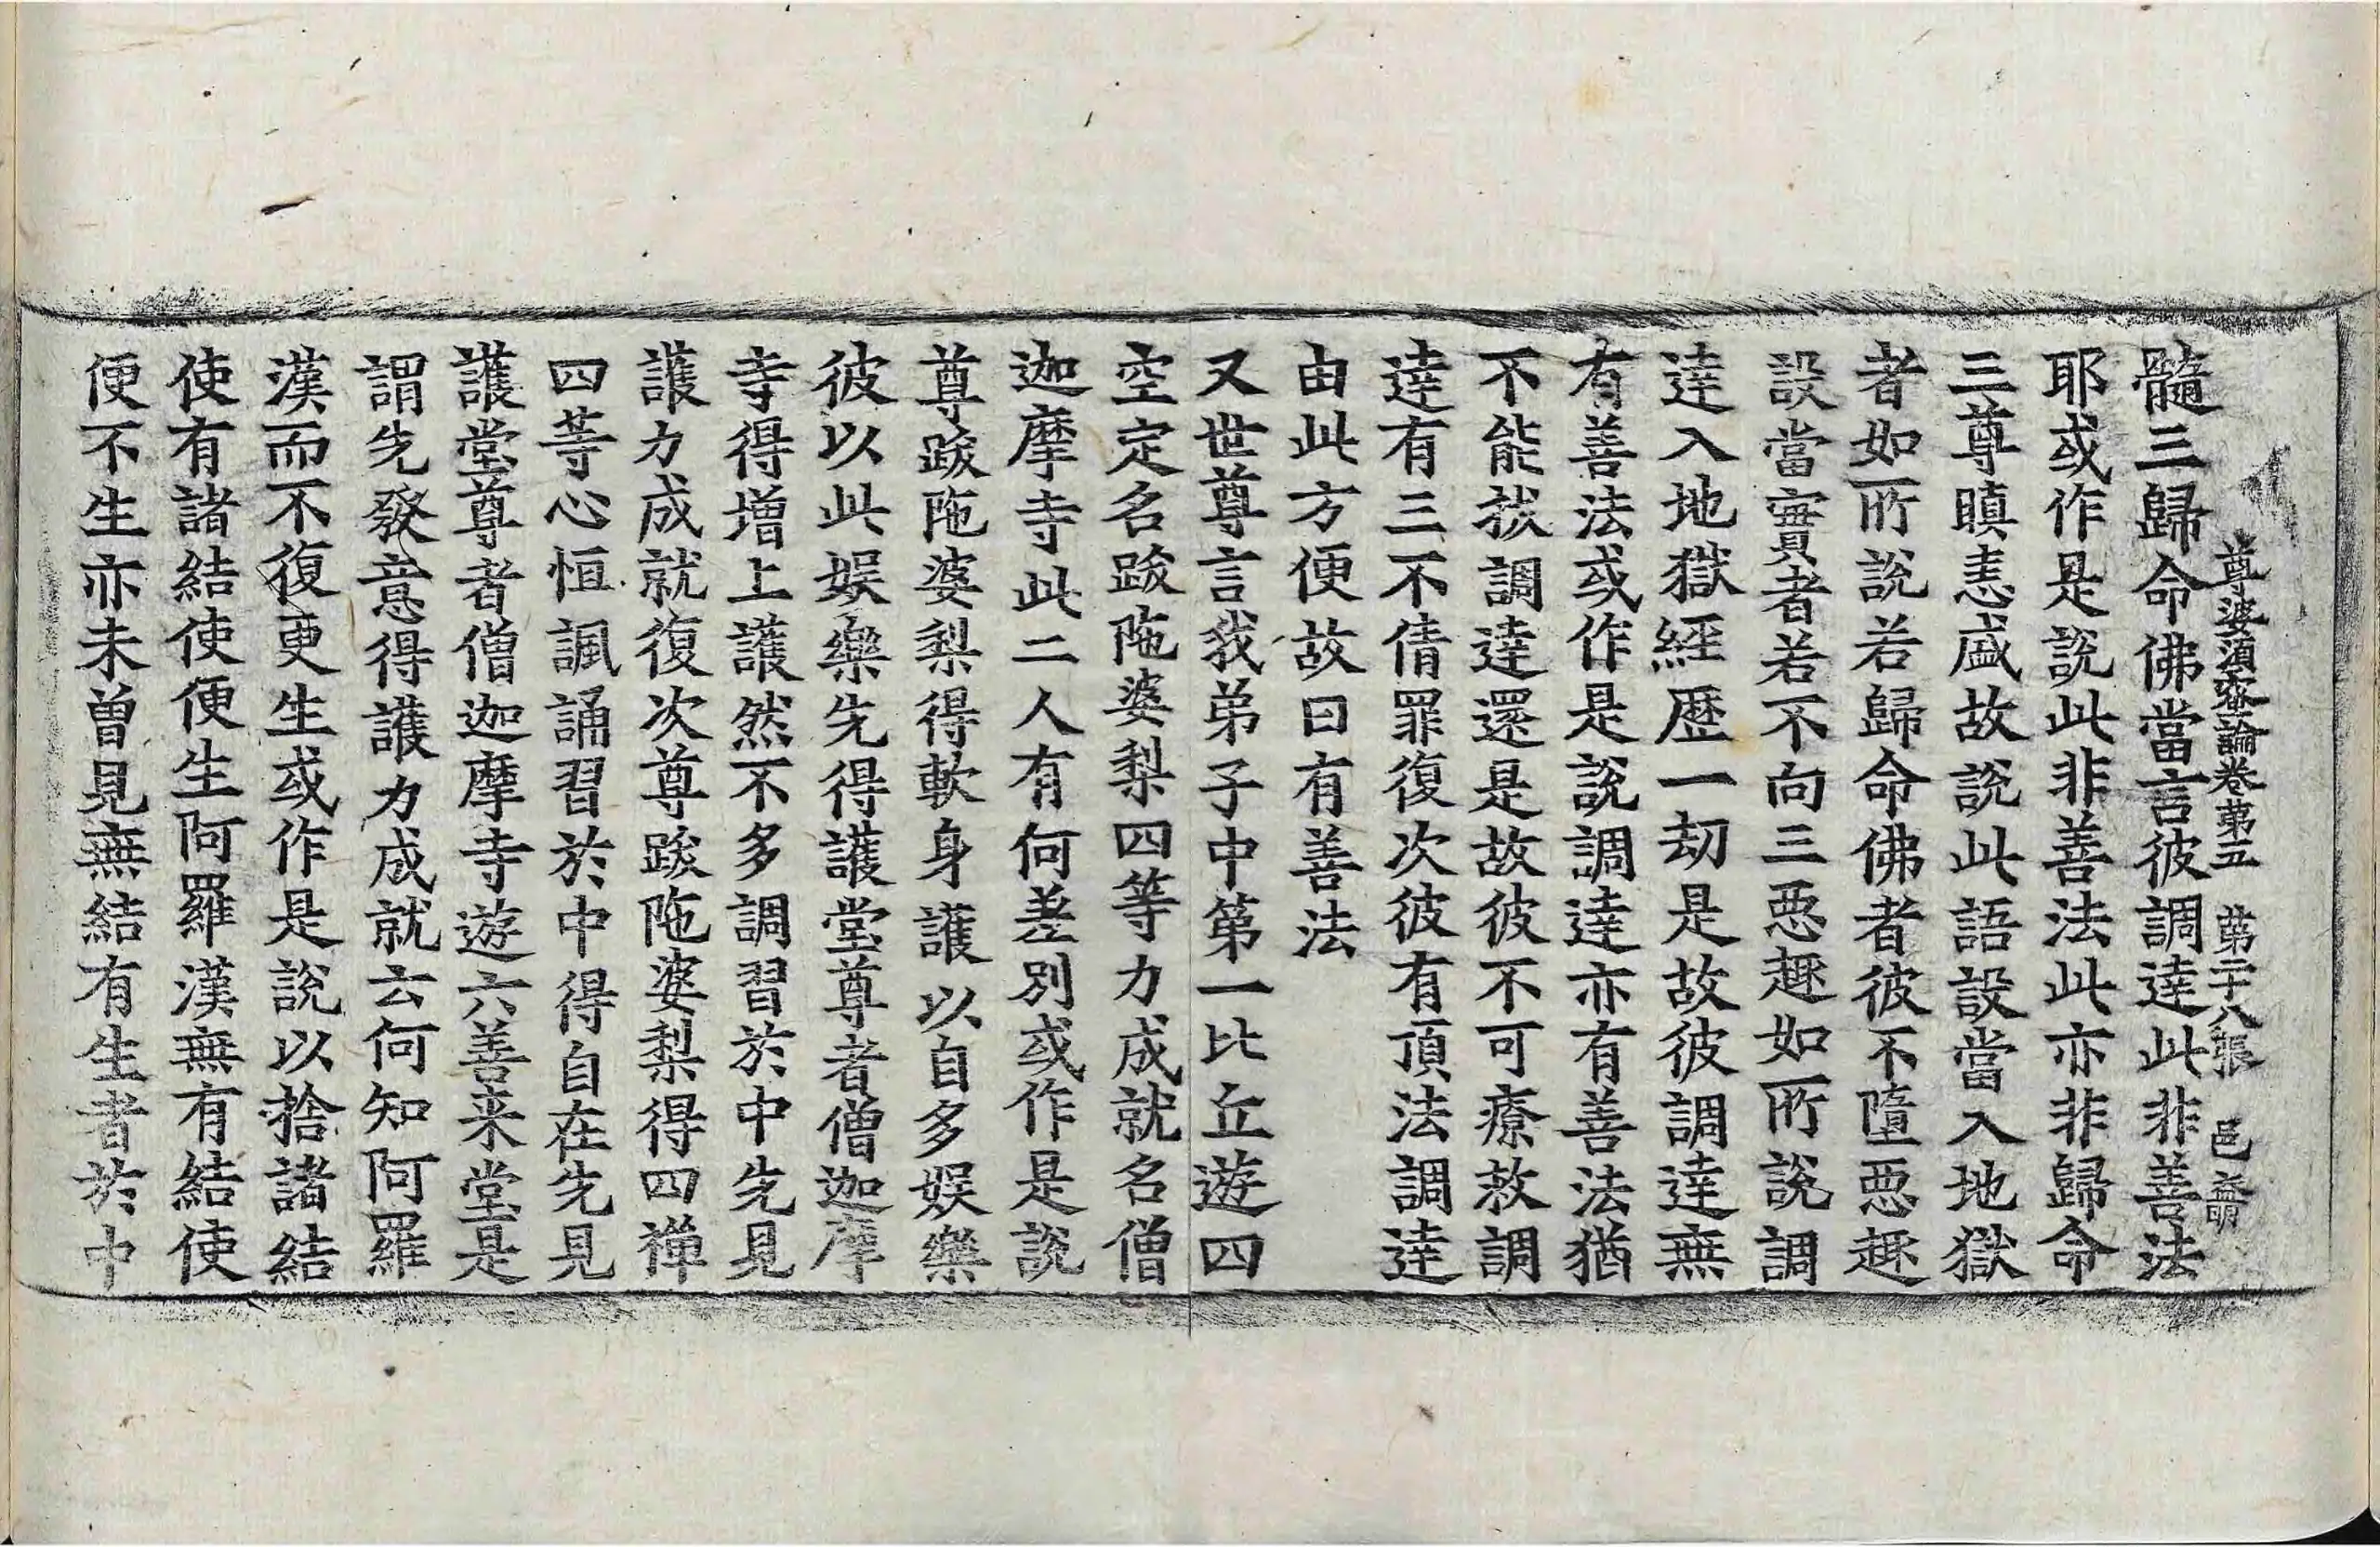 尊婆須蜜論卷苐五 苐二十八張 邑
髓三歸命佛當言彼調達此非善法
耶或作是說此非善法此亦非歸命
三尊瞋恚盛故說此語設當入地獄
者如所說若歸命佛者彼不墮惡趣
設當實者若不向三惡趣如所說調
達入地獄經歷一劫是故彼調達無
有善法或作是說調達亦有善法猶
不能拔調達還是故彼不可療救調
達有三不倩罪復次彼有頂法調達
由此方便故曰有善法
又世尊言我弟子中第一比丘遊四
空定名跋陁婆梨四等力成就名僧
迦摩寺此二人有何差別或作是說
尊跋陁婆梨得軟身護以自多娛樂
彼以此娛樂先得護堂尊者僧迦摩
寺得增上護然不多調習於中先見
護力成就復次尊跋陁婆梨得四禪
四等心恒諷誦習於中得自在先見
護堂尊者僧迦摩寺遊六善来堂是
謂先發意得護力成就云何知阿羅
漢而不復更生或作是說以捨諸結
使有諸結使便生阿羅漢無有結使
便不生亦未曾見無結有生者於中